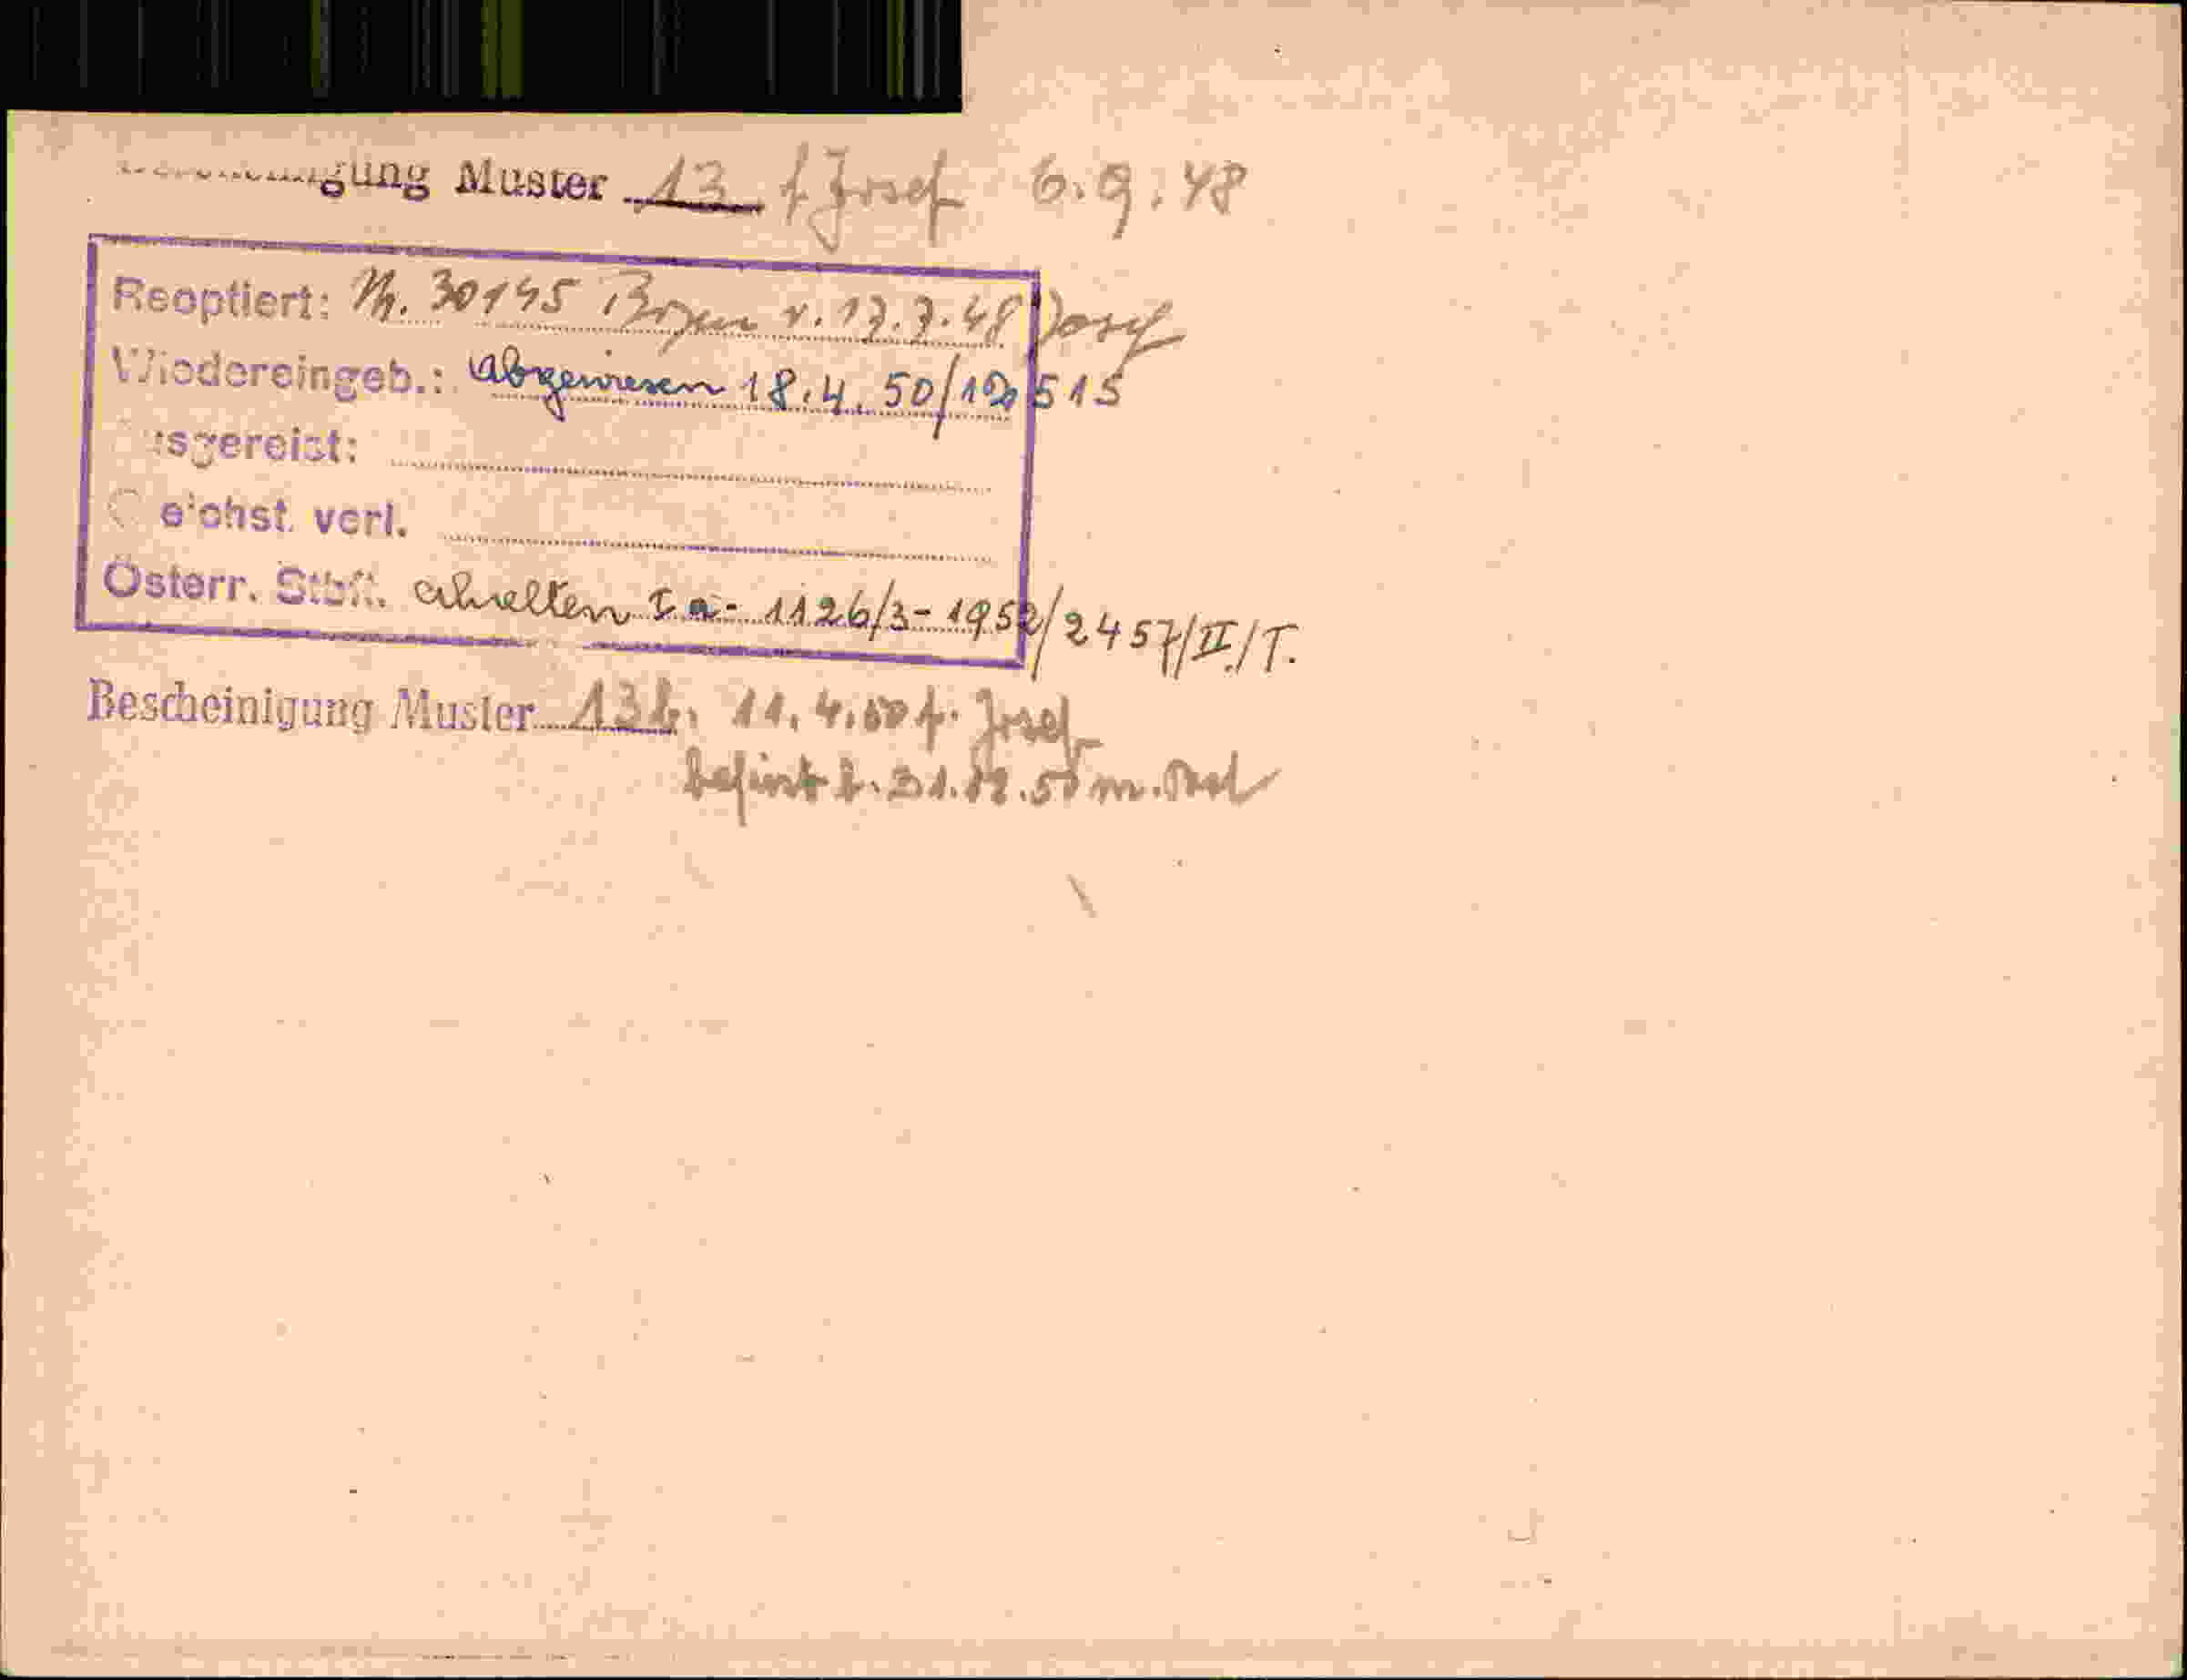 Bescheinigung Muster 13 f Josef 6.9.48
Reoptiert: Nr. 30195 Bozen v. 17.7.48 Josef
Wiedereingeb.: abgewiesen 18.4.50/120515
sgereist:
verl.
Österr. Stbft. erhalten I a - 1126/3-1952/2457/II/T.
Bescheinigung Muster 13b. 11.4.50 f. Josef
31.12.50 m.